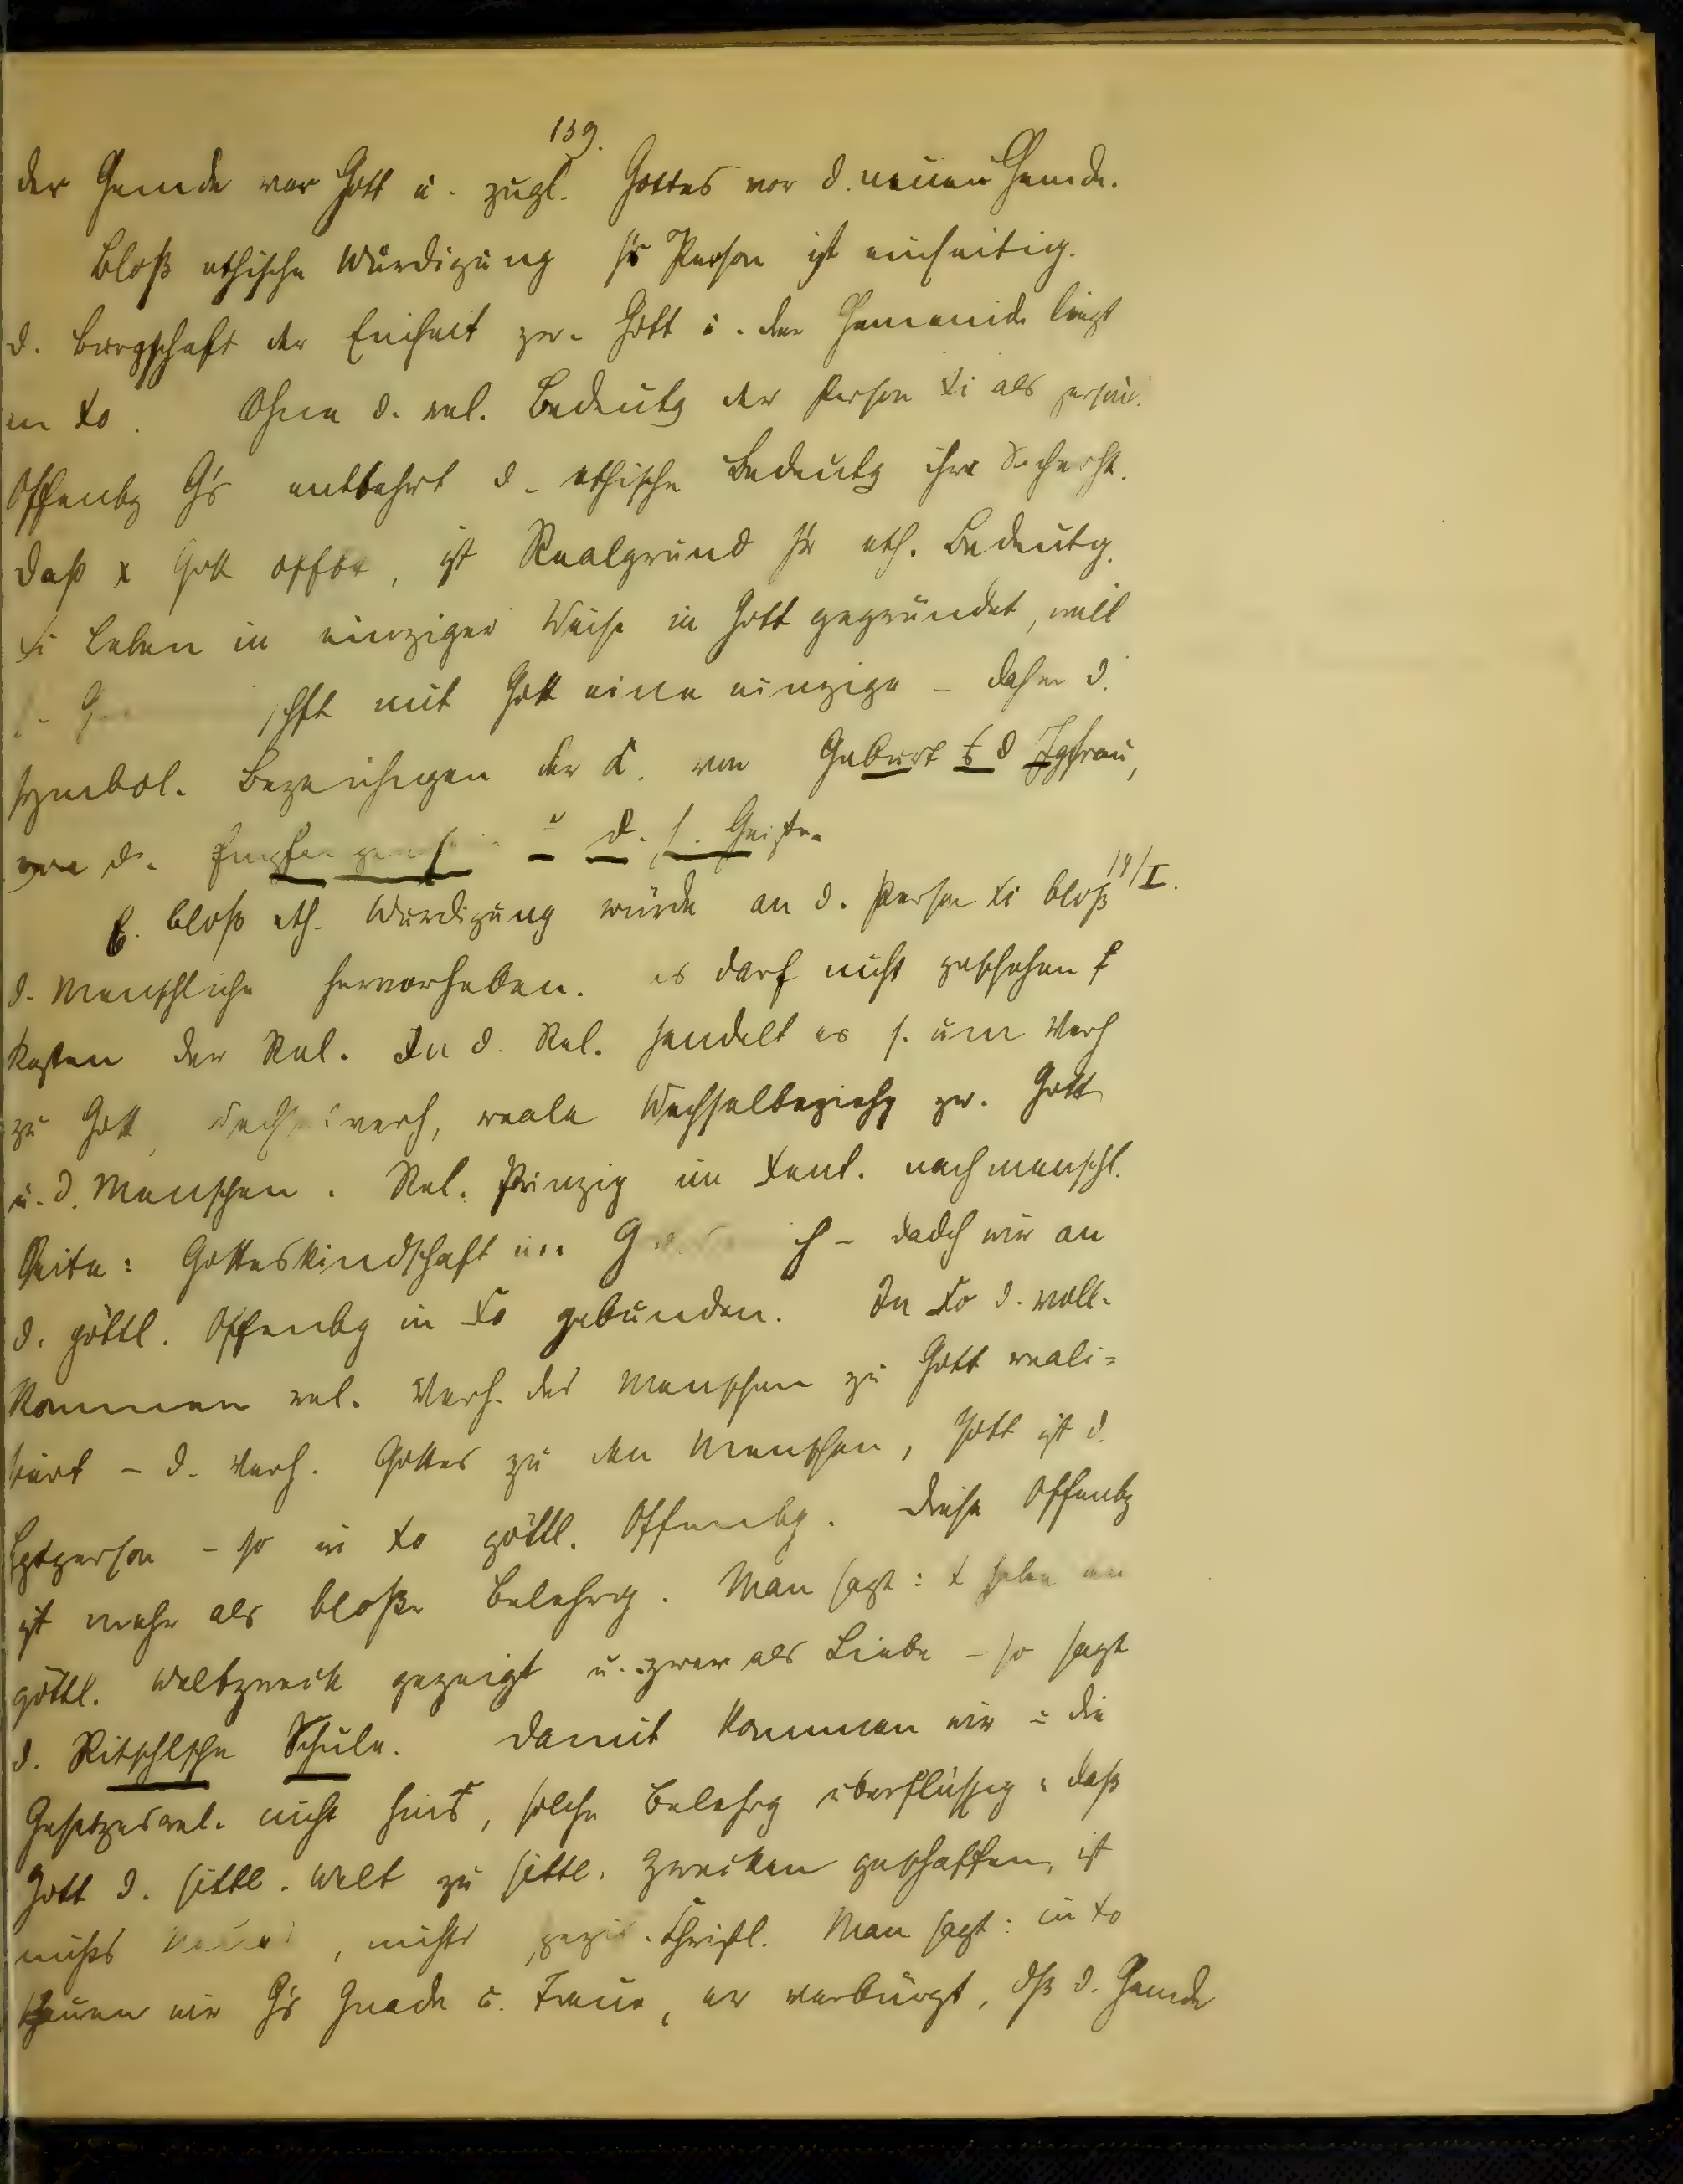 139.
der Gemde vor Gott u. zugl. Gottes vor d. neuen Gemde.
Bloß ethische Würdigung sr Person ist einseitig.
d. Bürgschaft der Einheit zw. Gott u. der Gemeinde liegt
in Xo. Ohne d. rel. Bedeutg der Person Xi als persönl.
Offenbg G's entbehrt d. ethische Bedeutg ihre Sicherht.
Daß X Gott offbt, ist Realgrund sr eth. Bedeutg.
Xi Leben in einziger Weise in Gott gegründet, weil
schft mit Gott eine einzige – daher d.
symbol. Bezeichngen der K. von Geburt d Jgfrau,
von d. d. h. Geiste.
E. bloß eth. Würdigung würde an d. Person Xi bloß 14/I.
d. Menschliche hervorheben. es darf nicht geschehen
Kosten der Rel. In d. Rel. handelt es s. um Verh
zu Gott, Wechselverh, reale Wechselbeziehg zw. Gott
u. d. Menschen. Rel. Prinzip im Xent. nach menschl.
Seite: Gotteskindschaft im – dadch wir an
d. göttl. Offenbg in Xo gebunden. In Xo d. voll-
kommen rel. Verh. des Menschen zu Gott reali-
sirt – d. Verh. Gottes zu den Menschen, Gott ist d.
– so in Xo göttl. Offenbg. Diese Offenbg
ist mehr als bloße Belehrg. Man sagt: X habe den
göttl. Weltzweck gezeigt u. zwar als Liebe – so sagt
d. Ritschlsche Schule. Damit kommen wir die
Gesetzesrel. nicht hins, solche Belehrg überflüssig: daß
Gott d. sittl. Welt zu sittl. Zwecken geschaffen, ist
nichts Neues, nichts spezif. Christl. Man sagt: in Xo
schauen wir G's Gnade u. Treue, er verbürgt, dß d. Gemde